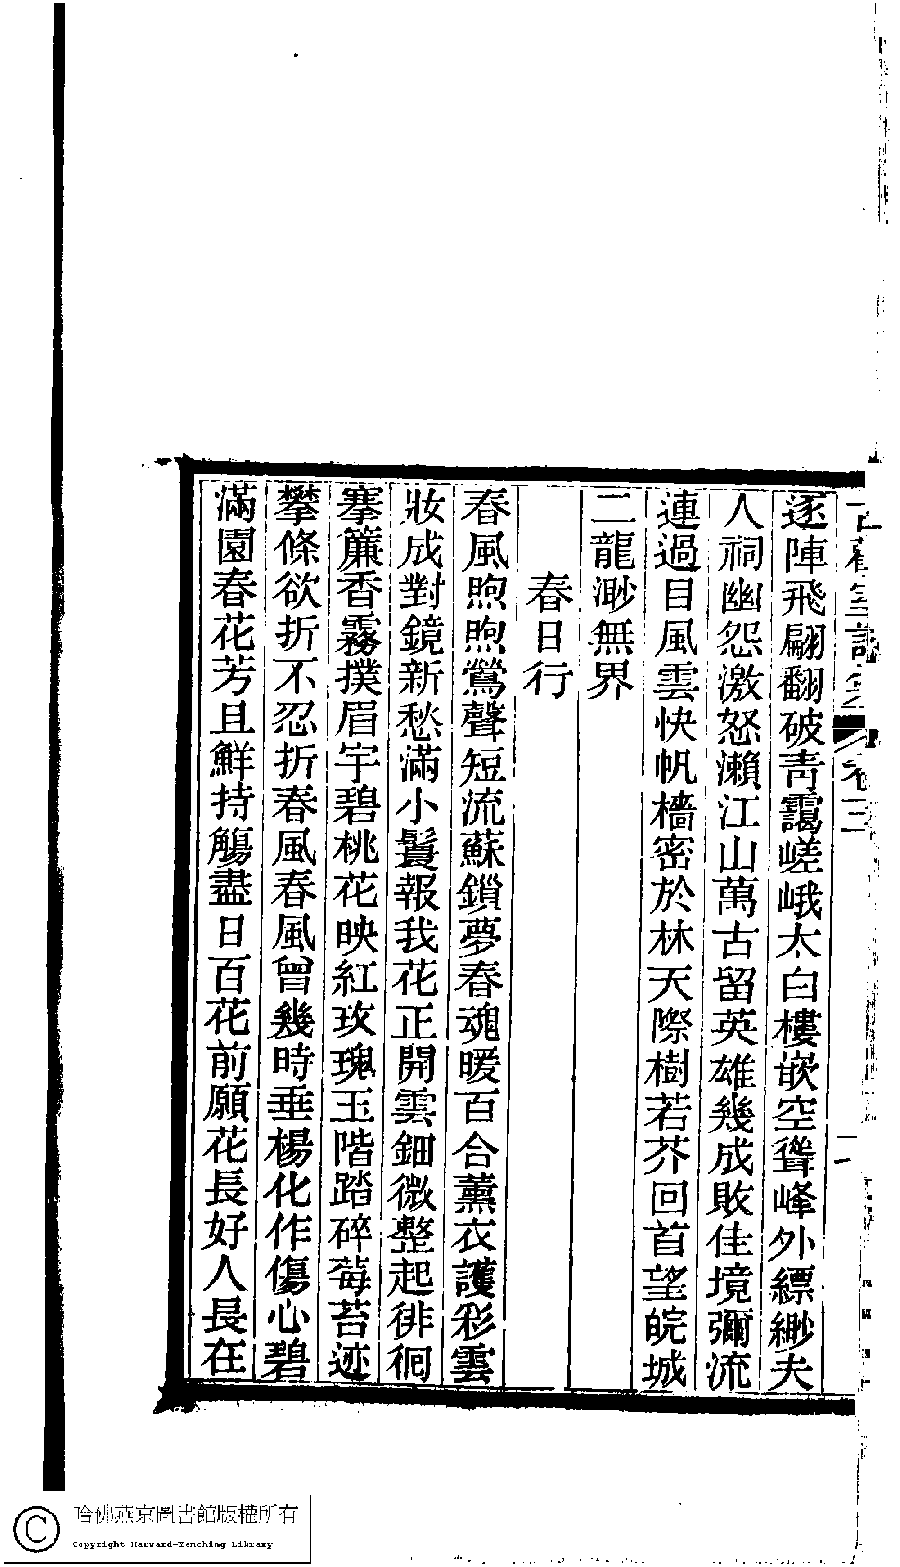 卷三
二
逐陣飛翩翻破靑靄嵯峨太白樓嵌空聳峰外縹緲夫
人祠幽怨激怒瀨江山萬古留英雄幾成敗佳境彌流
連過目風雲快帆檣密於林天際樹若芥回首望皖城
二龍渺無界
春日行
春風煦煦鶯聲短流蘇鎖夢春魂暖百合薰衣護彩雲
妝成對鏡新愁滿小鬟報我花正開雲鈿微整起徘徊
搴簾香霧撲眉宇碧桃花映紅玫瑰玉階踏碎莓苔迹
攀條欲折不忍折春風春風曾幾時垂楊化作傷心碧
滿園春花芳且鮮持觴盡日百花前願花長好人長在
哈佛燕京圖書館版權所有
Copyright Harvard-Yenching Library